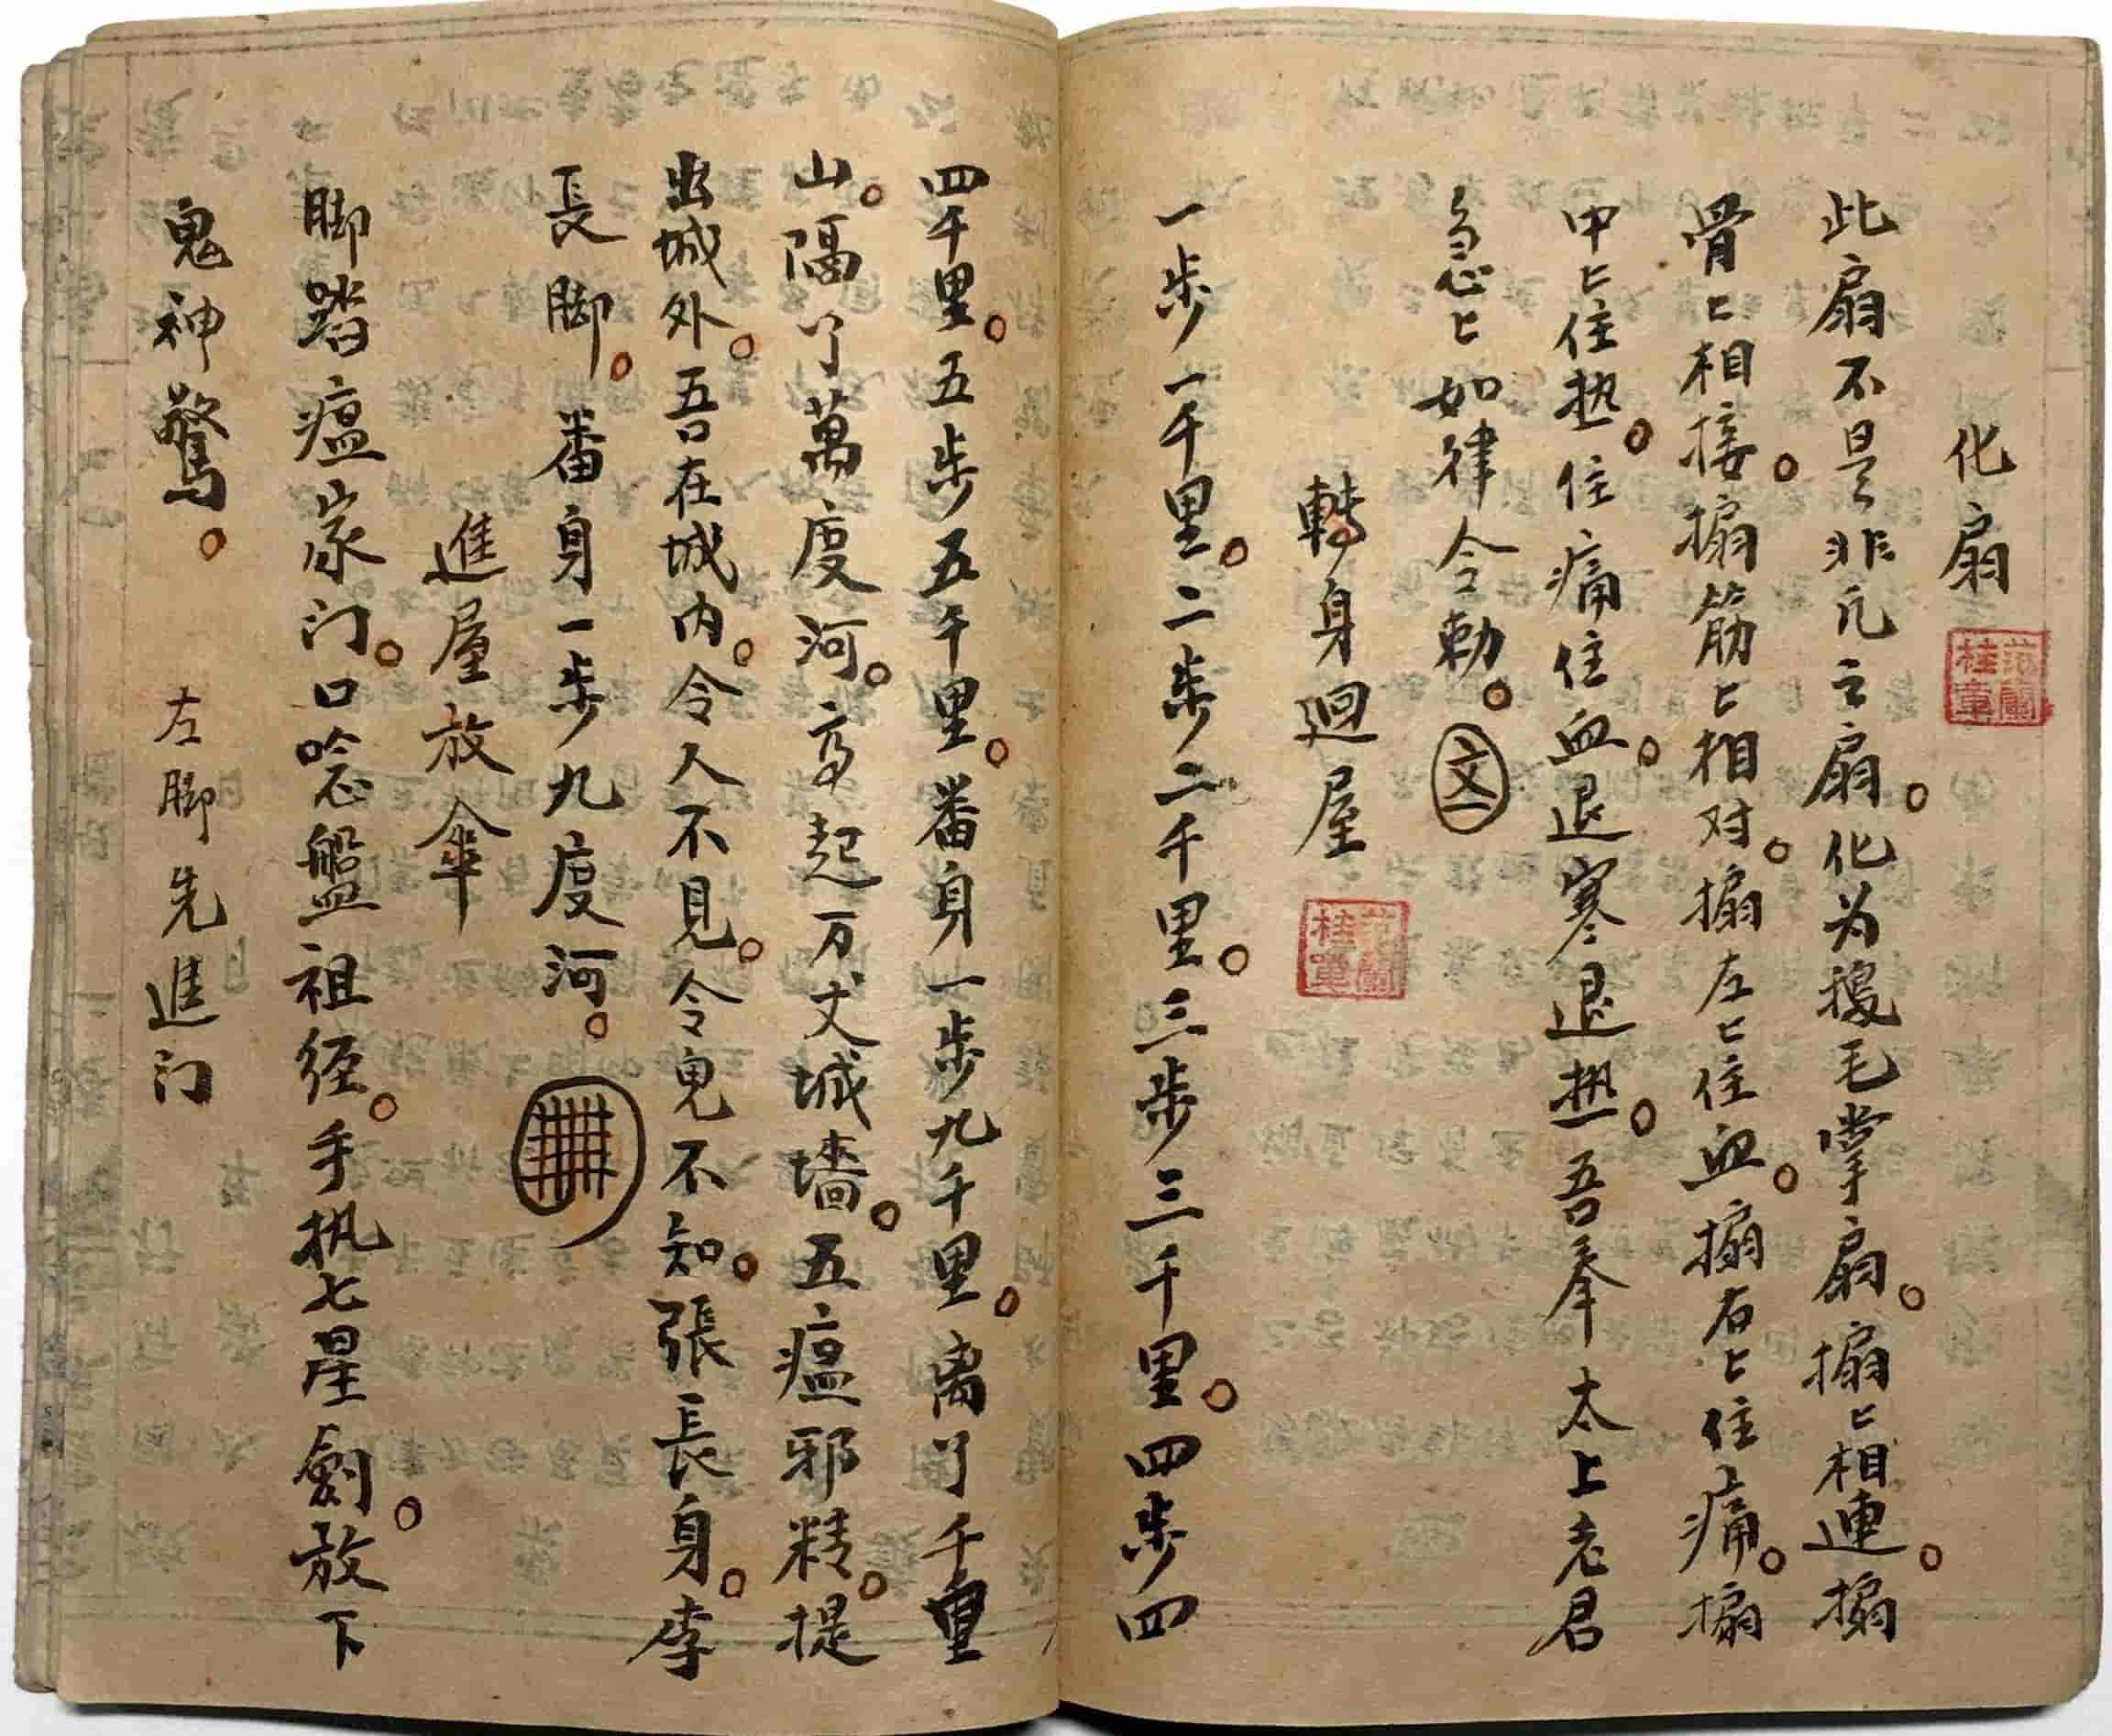 化扇
此扇不是非凡之扇。化为掇毛掌扇。搧〻相連。搧
骨〻相接。搧筋〻相对。搧左〻住血。搧右〻住痛。搧
中〻住热。住痛住血。退寒退热。吾奉太上老君
急〻如律令勅。
轉身迴屋
一步一千里。二步二千里。三步三千里。四步四
四千里。五步五千里。番身一步九千里。离了千重
山。隔了萬度河。亭起万丈城墻。五瘟邪精。提
出城外。吾在城内。令人不見。令鬼不知。張長身。李
長脚。番身一步九度河。
進屋放傘
脚踏瘟家门。口唸盤祖经。手执七星劍。放下
鬼神驚。 左脚先進门